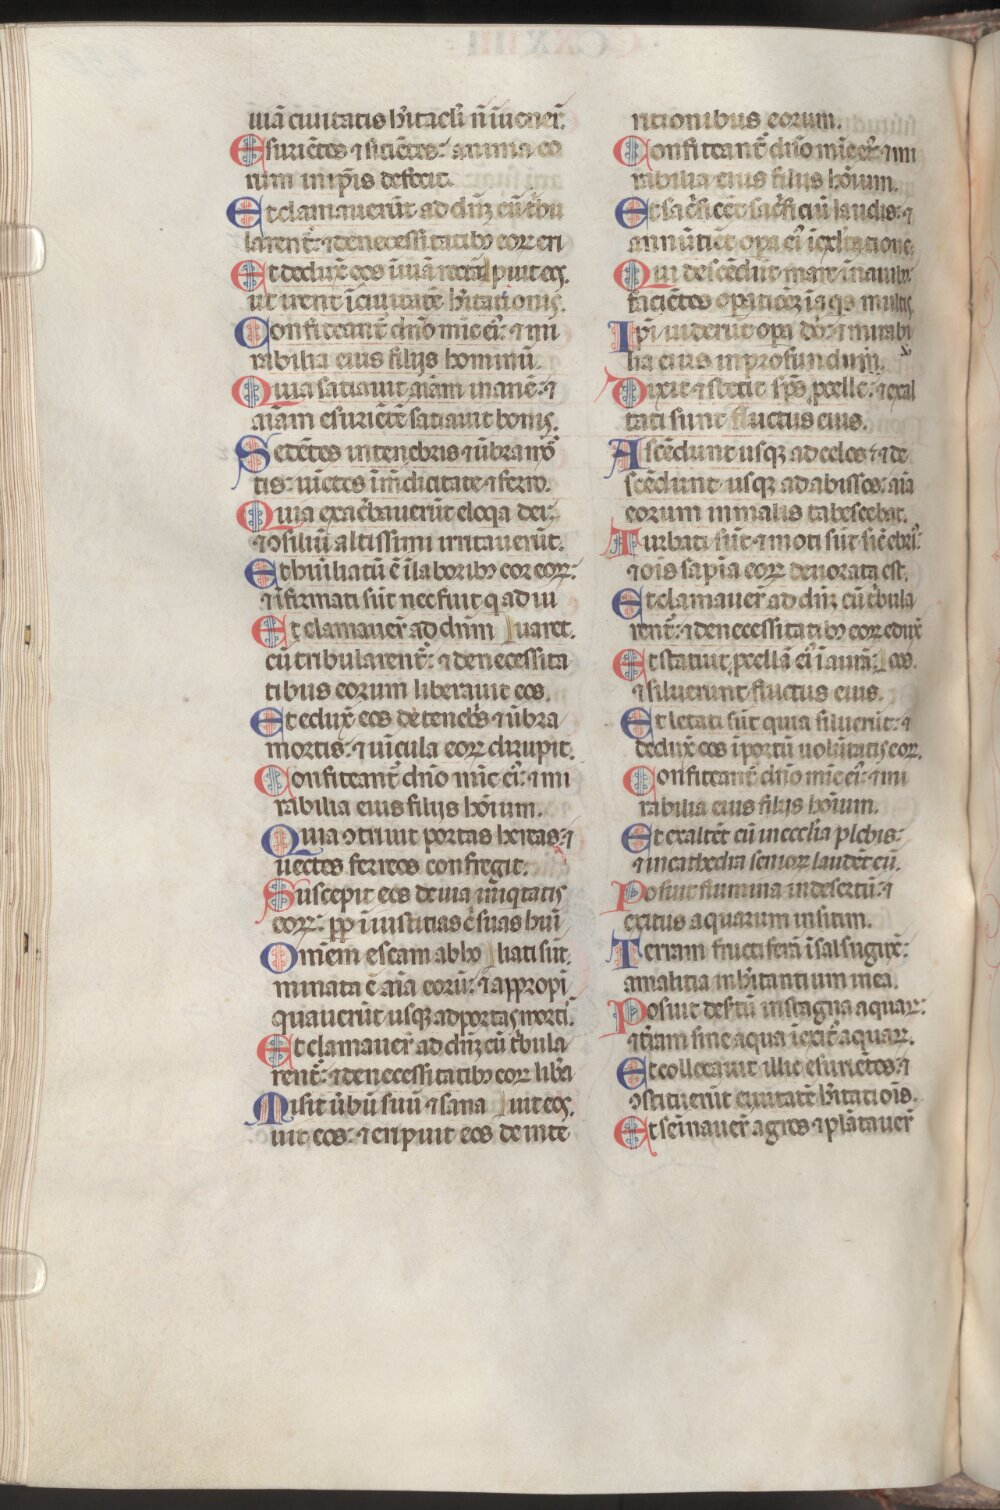 uiã ciuitatis hȋtacłi ñ īuener̃.
Esuriẽtes ⁊ siciẽtes: anima eo
rum in ip̃is defecit.
Et clamauerũt ad dñʒ cũ t̾bu
larent᷑: ⁊ de necessitatibꝫ eoꝝ eri
Et deduxͭ eos ī uiã rectã puit eoſ.
ut irent ī ciuitatẽ hȋtationis.
Confiteant᷑ dño mīe ei᷒: ⁊ mi
rabilia eius filijs hominũ.
Quia satiauit aiãm inanẽ: ⁊
aiãm esuriẽtẽ satiauit bonis.
Sedẽtes in tenebris ⁊ ũbra mor
tis: uīctos ī mẽdicitate ⁊ ferro.
Quia exac̾bauerũt eloqa dei:
⁊ ↄsiliũ altissimi irritauerũt.
Et huĩliatũ ẽ ī laboribꝫ cor eoꝝ:
⁊ īfirmati sũt nec fuit q adiu
Et clamauer̃ ad dñm uaret.
cũ tribularent᷑: ⁊ de necessita
tibus eorum liberauit eos.
Et eduxͭ eos de tenebis ⁊ ũbra
mortis: ⁊ uīcula eoꝝ dirupit.
Confiteant᷑ dño mīe ei᷒: ⁊ mi
rabilia eius filijs hõium.
Quia ↄtriuit portas hereas: ⁊
uectes ferreos confregit.
Suscepit eos de uia iniqtatis
eoꝝ: ꝓp̃ iniustitias ẽ suas humĩ
Omẽm escam abho liati sũt.
minata ẽ aĩa eorũ: ⁊ appropĩ
quauerũt usqꝫ ad portas morti.
Et clamauer̃ ad dñʒ cũ t̾bula
rent᷑: ⁊ de necessitatibꝫ eoꝝ lib̾a
Misit ũbũ suũ ⁊ sana uit eoſ.
uit eos: ⁊ eripuit eos de inte
ritionibus eorum.
Confiteant᷑ dño mīe ei᷒: ⁊ mi
rabilia eius filijs hõium.
Et sac̾ficẽt sac̾ficiũ laudis: ⁊
annũtiẽt opa ei᷒ ī exl̃tatione.
Qui descẽdũt mare in nauibꝫ:
faciẽtes opatiõeʒ ī aqs multis.
Ipi uiderũt opa dñi: ⁊ mirabi
lia eius in profundum.
Dixit ⁊ stetit sp̃s ꝓcelle: ⁊ exal
tati sunt fluctus eius.
Ascẽdunt usqꝫ ad celos ⁊ de
scẽdunt usqꝫ ad abissos: aĩa
eorum in malis tabescebat.
Turbati sũt ⁊ moti sũt sič ebri᷒:
⁊ ois sapĩa eoꝝ deuorata est.
Et clamauer̃ ad dñʒ cũ t̾bula
rent᷑: ⁊ de necessitatibꝫ eoꝝ eduxͭ
Et statuit ꝓcellã ei᷒ ī aurã: eos.
⁊ siluerunt fluctus eius.
Et letati sũt quia siluerũt: ⁊
deduxͭ eos ī portũ uolũtatis eoꝝ.
Confiteant᷑ dño mīe ei᷒: ⁊ mi
rabilia eius filijs hõium.
Et exaltẽt eũ in eccl̃ia plebis:
⁊ in cathedra senioꝝ laudẽt eũ.
Posuit flumina in desertũ: ⁊
exitus aquarum in sitim.
Terram fructiferã ī salsuginẽ:
a malitia inhȋtantium in ea.
Posuit des̾tũ in stagna aquaꝝ:
⁊ t̾ram sine aqua ī exit᷒ aquaꝝ.
Et collocauit illic esuriẽtes: ⁊
ↄstituerũt ciuitatẽ hȋtatiõis.
Et seĩauer̃ agros ⁊ plãtauer̃